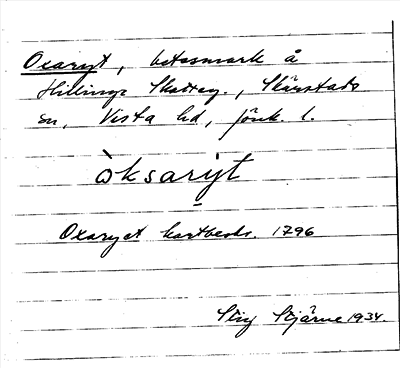 Oxaryt, betesmark å
Hillinge Skatteg., Skärstads
sn, Vista hd, Jönk. l.
òksarỳt
Oxaryet kartbeskr. 1796
Stig Stjärne 1934.